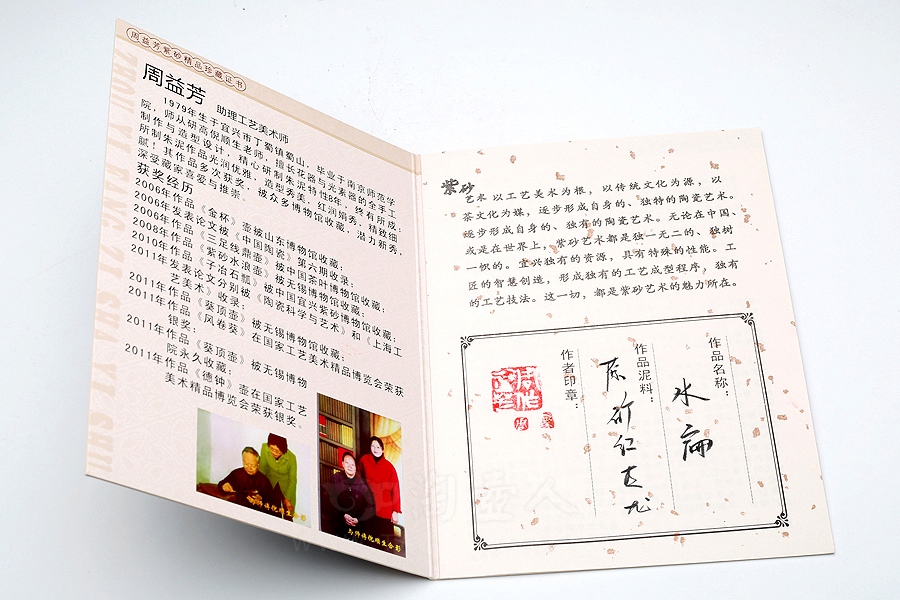 周益芳紫砂精品珍藏证书
周益芳 助理工艺美术师
1979年生于宜兴市丁蜀镇蜀山，毕业于南京师范学
院，师从研高倪顺生老师，擅长花器与光素器的全手工
制作与造型设计，精心研制朱泥特性8年，终有所成：
所制朱泥作品光润优雅、造型秀美，红润娟秀、精致细
腻！其作品多次获奖、被众多博物馆收藏，潜力新秀，
深受藏家喜爱与推崇。
获奖经历
2006年作品《金杯》壶被山东博物馆收藏；
2006年发表论文被《中国陶瓷》第六期收录；
2006年作品《三足线鼎壶》被中国茶叶博物馆收藏；
2008年作品《紫砂水浪壶》被无锡博物馆收藏；
2010年作品《子冶石瓢》被中国宜兴紫砂博物馆收藏
2011年发表论文分别被《陶瓷科学与艺术》和《上海工
艺美术》收录；
2011年作品《葵顶壶》被无锡博物馆收藏；
2011年作品《风卷葵》在国家工艺美术精品博览会荣获
银奖；
2011年作品《葵顶壶》被无锡博物
院永久收藏；
2011年作品《德钟》壶在国家工艺
美术精品博览会荣获银奖。
与师傅倪顺生合影
与师傅倪顺生合影
紫砂艺术以工艺美术为根，以传统文化为源，以
茶文化为媒，逐步形成自身的、独特的陶瓷艺术。
逐步形成自身的、独有的陶瓷艺术。无论在中国、
或是在世界上，紫砂艺术都是独一无二的、独树
一帜的。宜兴独有的资源，具有特殊的性能。工
匠的智慧创造，形成独有的工艺成型程序，独有
的工艺技法。这一切，都是紫砂艺术的魅力所在。
作品名称：
水扁
作品泥料：
作者印章：